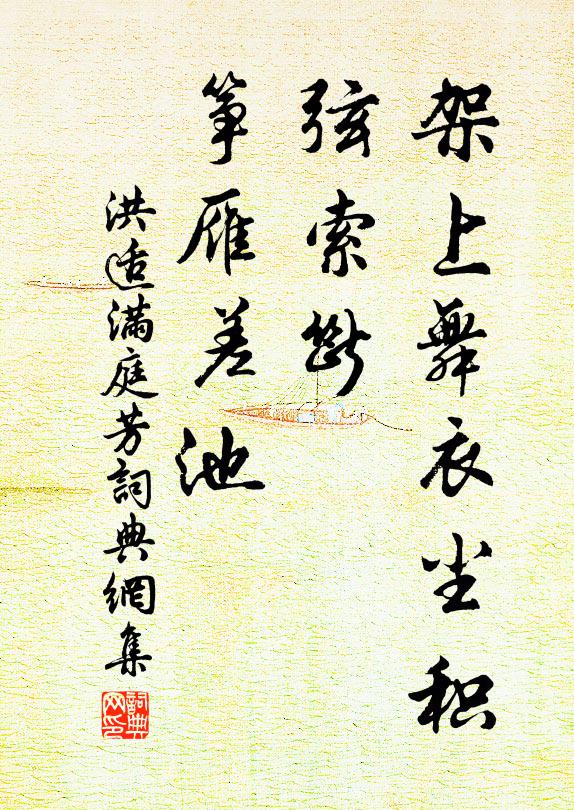 架上舞衣尘积
弦索断
筝雁差池
洪适满庭芳詞典網集
詞典网印